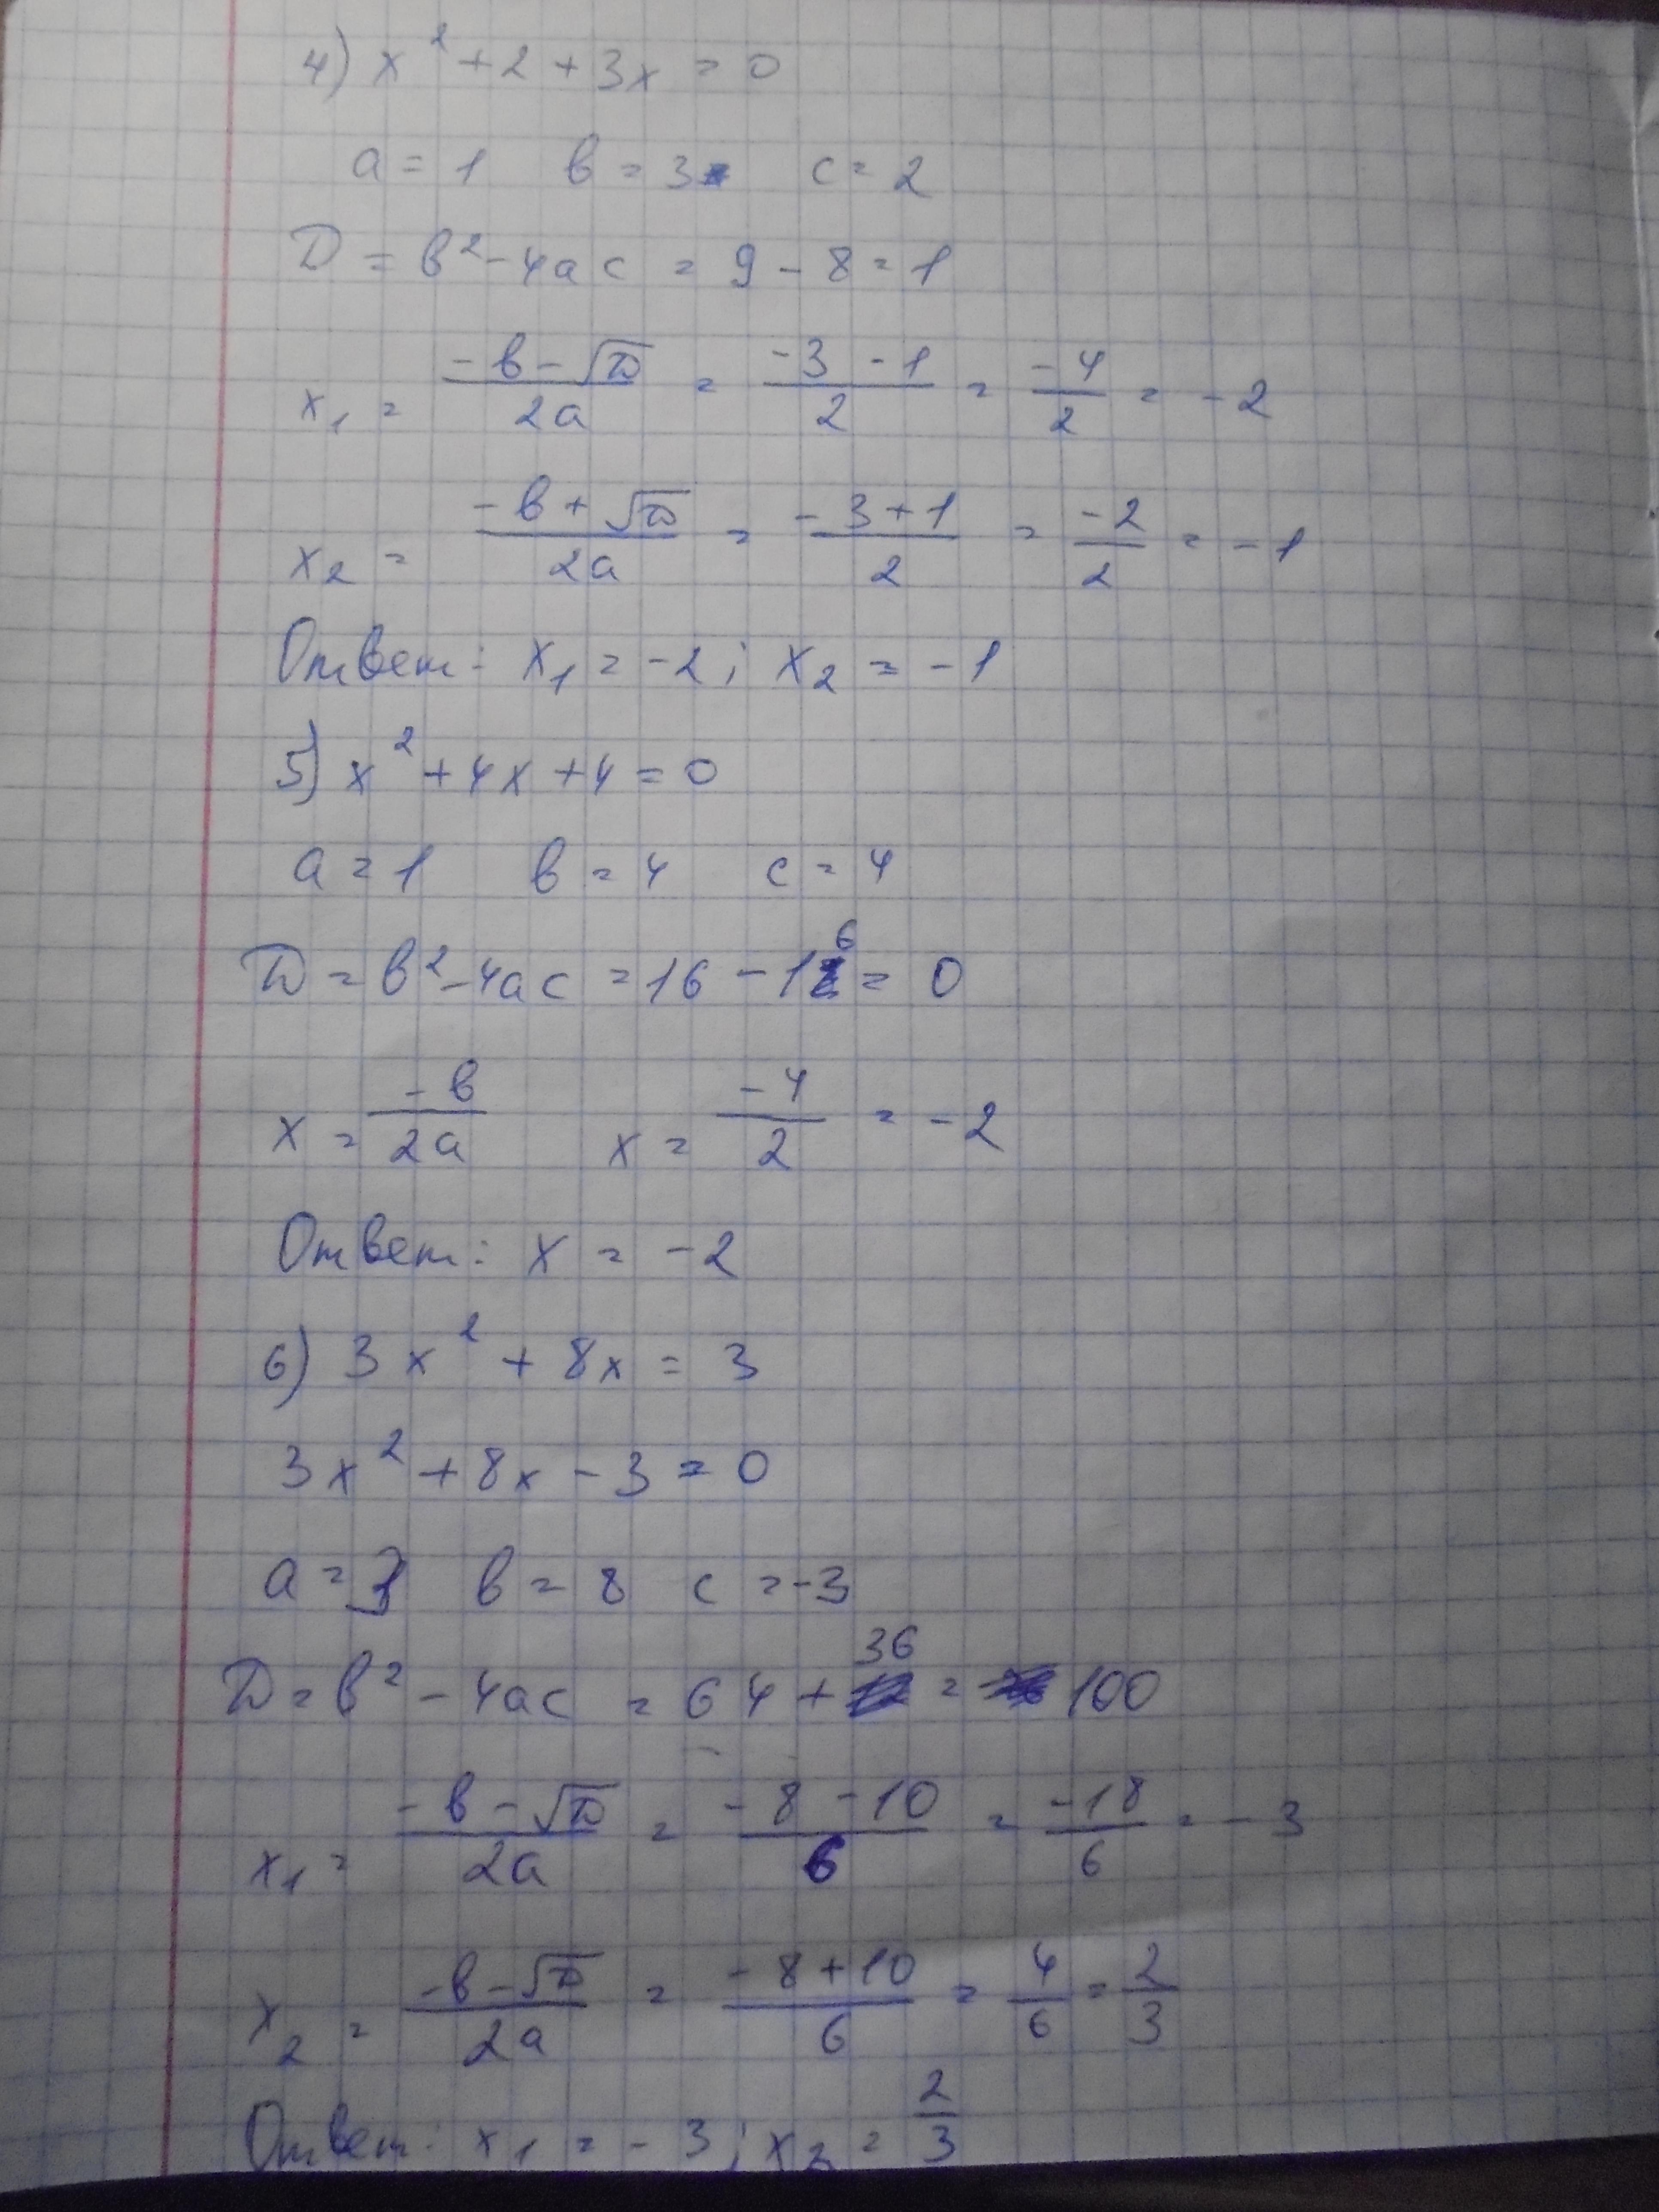 4) x² + 2 + 3x = 0
a = 1 b = 3 c = 2
D = b² - 4ac = 9 - 8 = 1
x₁ = (-b - √D)/(2a) = (-3 - 1)/2 = -4/2 = -2
x₂ = (-b + √D)/(2a) = (-3 + 1)/2 = -2/2 = -1
Ответ: x₁ = -2; x₂ = -1
5) x² + 4x + 4 = 0
a = 1 b = 4 c = 4
D = b² - 4ac = 16 - 16 = 0
x = -b/(2a) x = -4/2 = -2
Ответ: x = -2
6) 3x² + 8x = 3
3x² + 8x - 3 = 0
a = 3 b = 8 c = -3
D = b² - 4ac = 64 + 36 = 100
x₁ = (-b - √D)/(2a) = (-8 - 10)/6 = -18/6 = -3
x₂ = (-b - √D)/(2a) = (-8 + 10)/6 = 4/6 = 2/3
Ответ: x₁ = -3; x₂ = 2/3